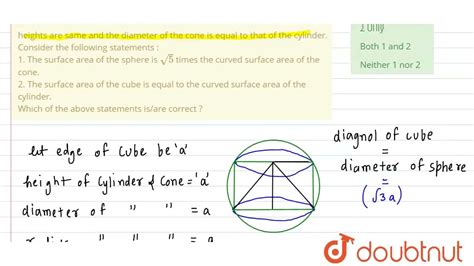 heights are same and the diameter of the cone is equal to that of the cylinder.
Consider the following statements :
1. The surface area of the sphere is √5 times the curved surface area of the
cone.
2. The surface area of the cube is equal to the curved surface area of the
cylinder.
Which of the above statements is/are correct ?
2 only
Both 1 and 2
Neither 1 nor 2
let edge of cube be 'a'
height of cylinder & cone = 'a'
diameter of " " = a
" " = a
diagnol of cube
=
diameter of sphere
=
(√3a)
doubtnut